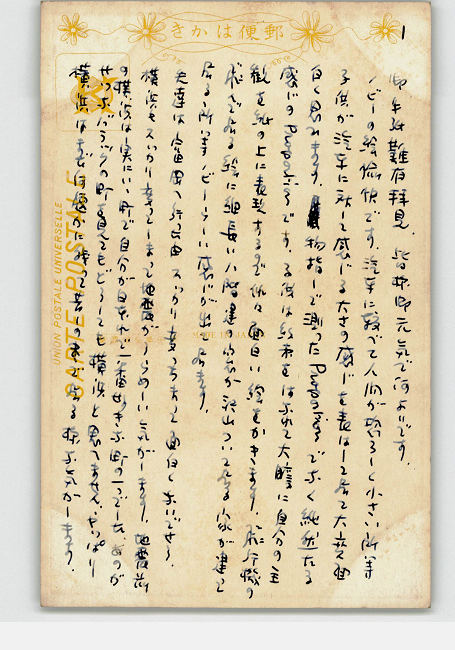 郵便はかき
1
UNION POSTALE UNIVERSELLE
CARTE POSTALE
御手紙難有拝見。皆様御元気で何よりです。
ノビーの絵愉快です。汽車に較べて人間が恐ろしく小さい所等
子供が汽車に対して感じる大きさの感じを表はして居て大変面
白く思ひます。物指しで測ったPropotionでなく純然たる
感じのPropotionです。子供は約束をはなれて大胆に自分の主
観を紙の上に表現するので仲々面白い絵をかきます。飛行機の
飛んで居る絵に細長い八階建の家が沢山ついて居る家が建って
居る所等ノビーらしい感じが出て居ます。
先達は富田へ行った由 すっかり変ったまって面白くないでせう。
横浜もすっかり変ってしまって地震がうらめしい気がします。地震前
の横浜は実にいい町で自分が日本中で一番好きな町の一つでした。あのが
せつなバラックの町を見てもどうしても横浜と思へません。やっぱり
横浜はまだ何処かに残って昔のままである様な気がします。